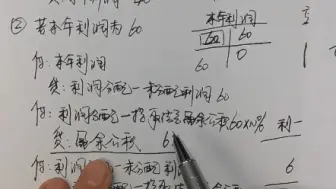 ② 若本年利润为 60
本年利润
60 60
60 0
借:本年利润
贷:利润分配—未分配利润 60
借:利润分配—提取法定盈余公积 60×10% 利—
贷:盈余公积 6
借:利润分配—未分配利 6